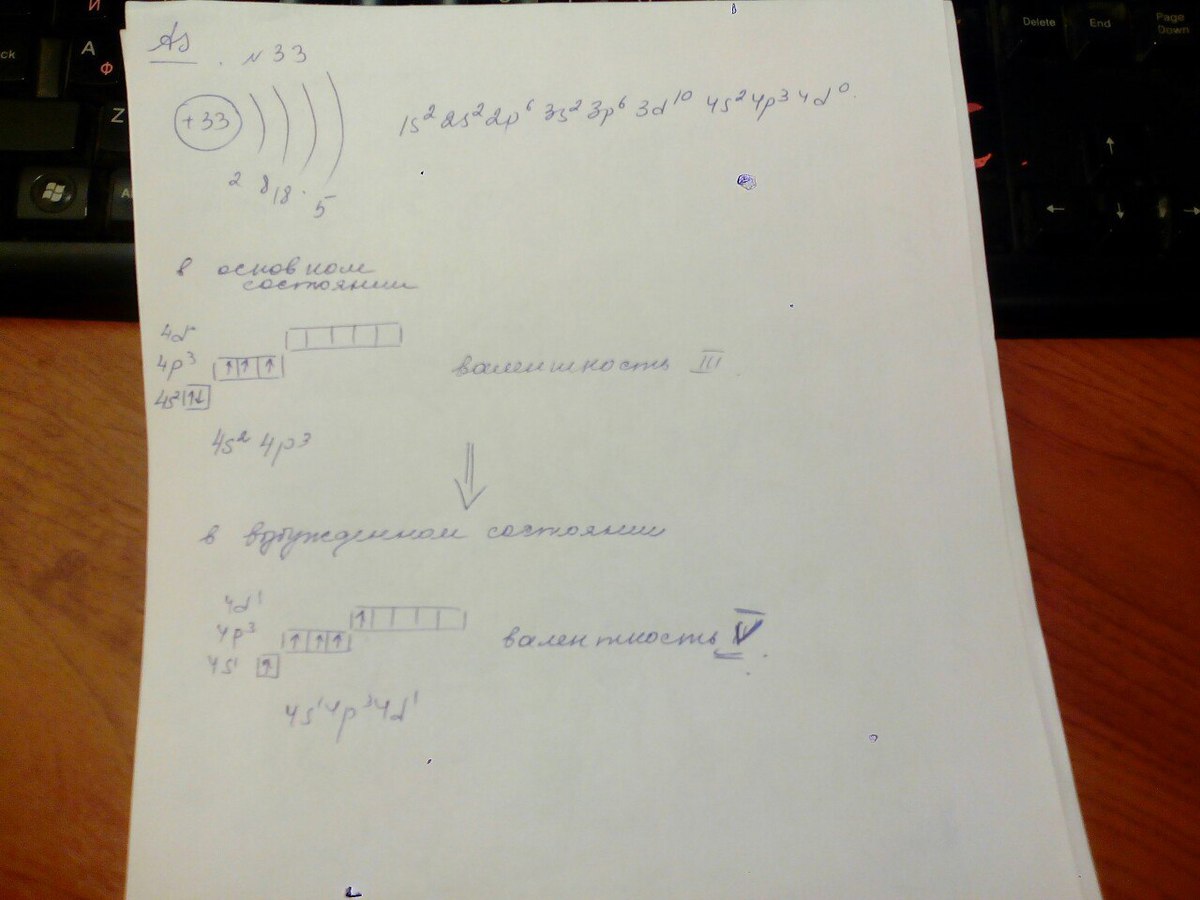 As . N 33
+33
2 8 18 5
1s² 2s² 2p⁶ 3s² 3p⁶ 3d¹⁰ 4s² 4p³ 4d⁰.
в основном
состоянии
4d
4p³ ↑ ↑ ↑
4s² ↑↓
валентность III
4s² 4p³
в возбужденном состоянии
4d¹ ↑
4p³ ↑ ↑ ↑
4s¹ ↑
валентность V.
4s¹ 4p³ 4d¹
Delete End Page Down
ck
A Ф
Й
Z